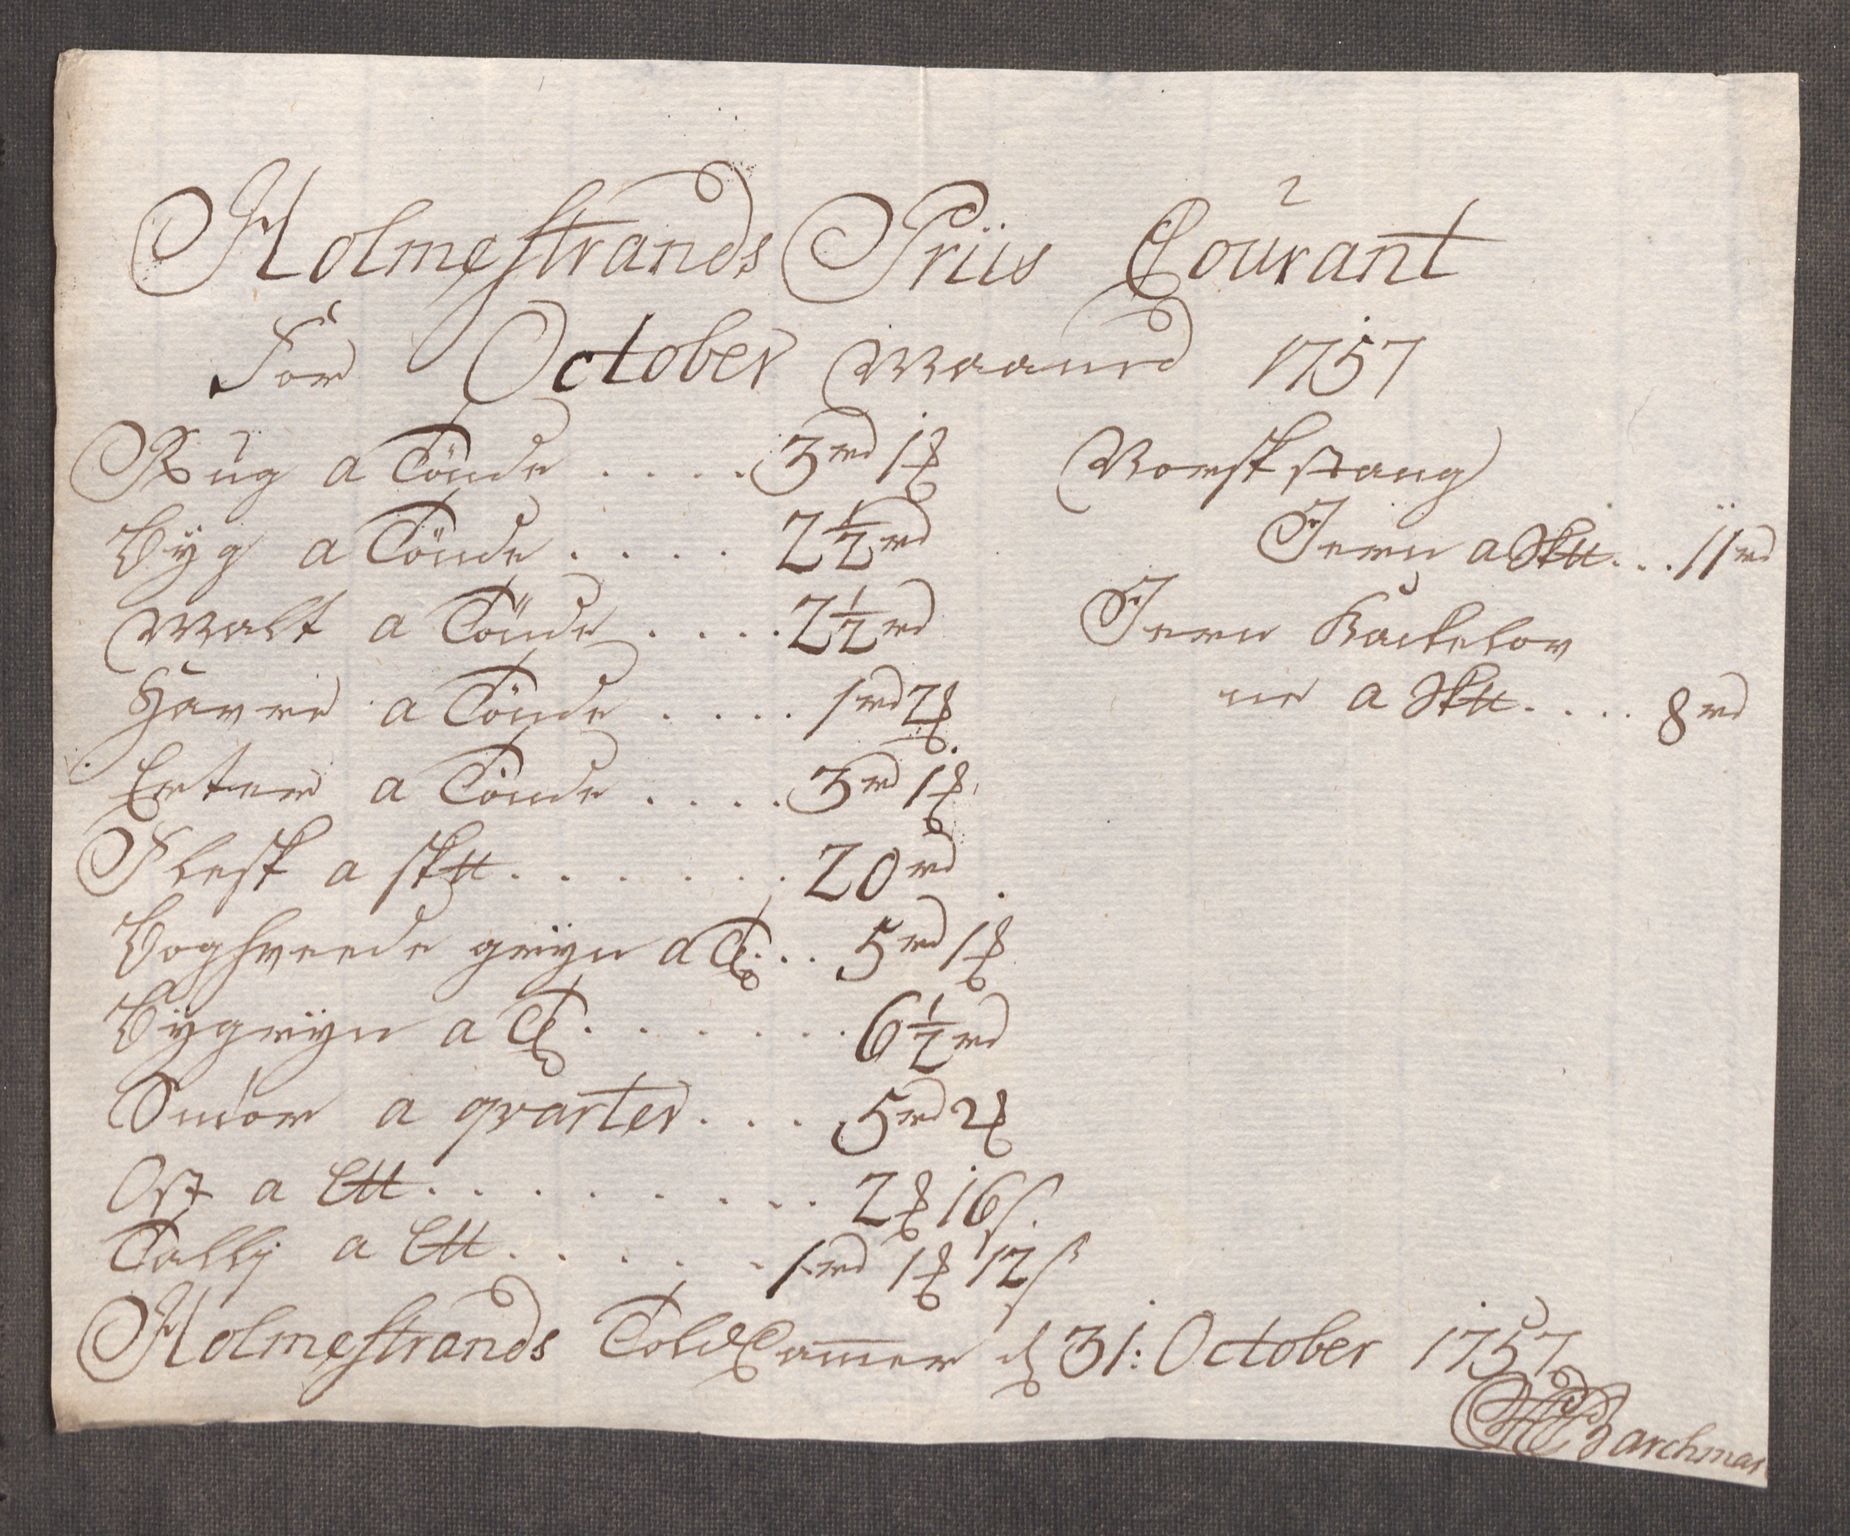 Holmestrands Priis Courant
For October Maaned 1757
Rug a Tönde .... 3 rd 1 ꝑ
Byg a Tönde .... 2½ rd
Malt a Tönde .... 2½ rd
Havre a Tönde .... 1 rd 2 ꝑ
Erter a Tönde .... 3 rd 1 ꝑ
Flesk a sk℔ ...... 20 rd
Boghveede gryn a T ... 5 rd 1 ꝑ
Byggryn a T ...... 6½ rd
Smör a qvarter ... 5 rd 2 ꝑ
Ost a L℔ ........ 2 ꝑ 16 s
Tallig a L℔ ..... 1 rd 1 ꝑ 12 s
Norsk stang
Jern a Sk℔ ... 11 rd
Jern Kackelov
ne a Sk℔ .... 8 rd
Holmestrands Told Cammer d 31: October 1757
Barchman